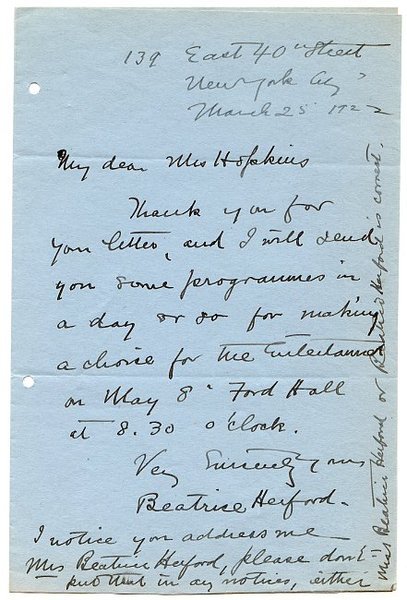 139 East 40th Street
New York City
March 25 1922
My dear Mrs Hopkins
Thank you for
your letter, and I will send
you some programmes in
a day or so for making
a choice for the Entertainment
on May 8th Ford Hall
at 8.30 o'clock.
Very Sincerely yours
Beatrice Herford.
I notice you address me
Mrs Beatrice Herford, please don't
put that in any notices, either
Miss Beatrice Herford or Beatrice Herford is correct.